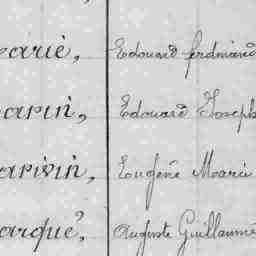 arié, Edouard ferdinand
arin, Edouard Joseph
arivin, Eugène Marie
arqué, Auguste Guillaume